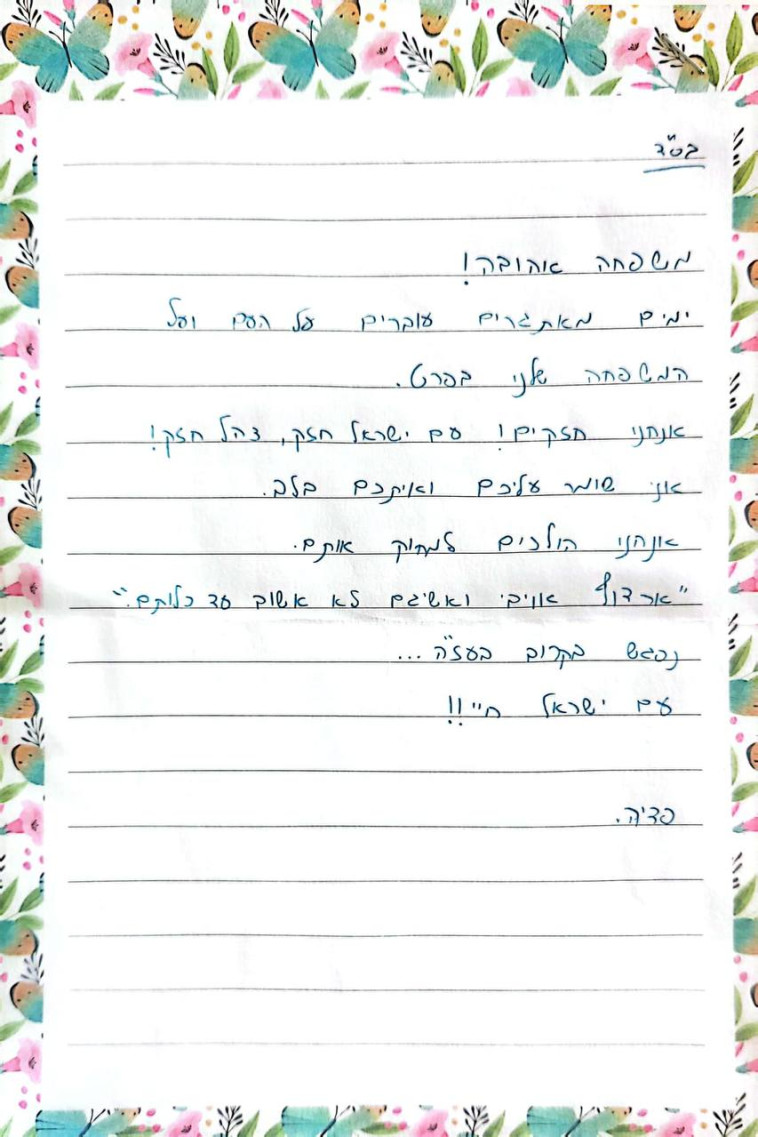 בס"ד
משפחה אהובה!
ימים מאתגרים עוברים על העם ועל
המשפחה שלנו בפרט.
אנחנו חזקים! עם ישראל חזק, צהל חזק!
אני שומר עליכם ואיתכם בלב.
אנחנו הולכים למחוק אותם.
"ארדוף אויבי ואשיגם לא אשוב עד כלותם."
נפגש בקרוב בעז"ה...
עם ישראל חי!!
פדיה.